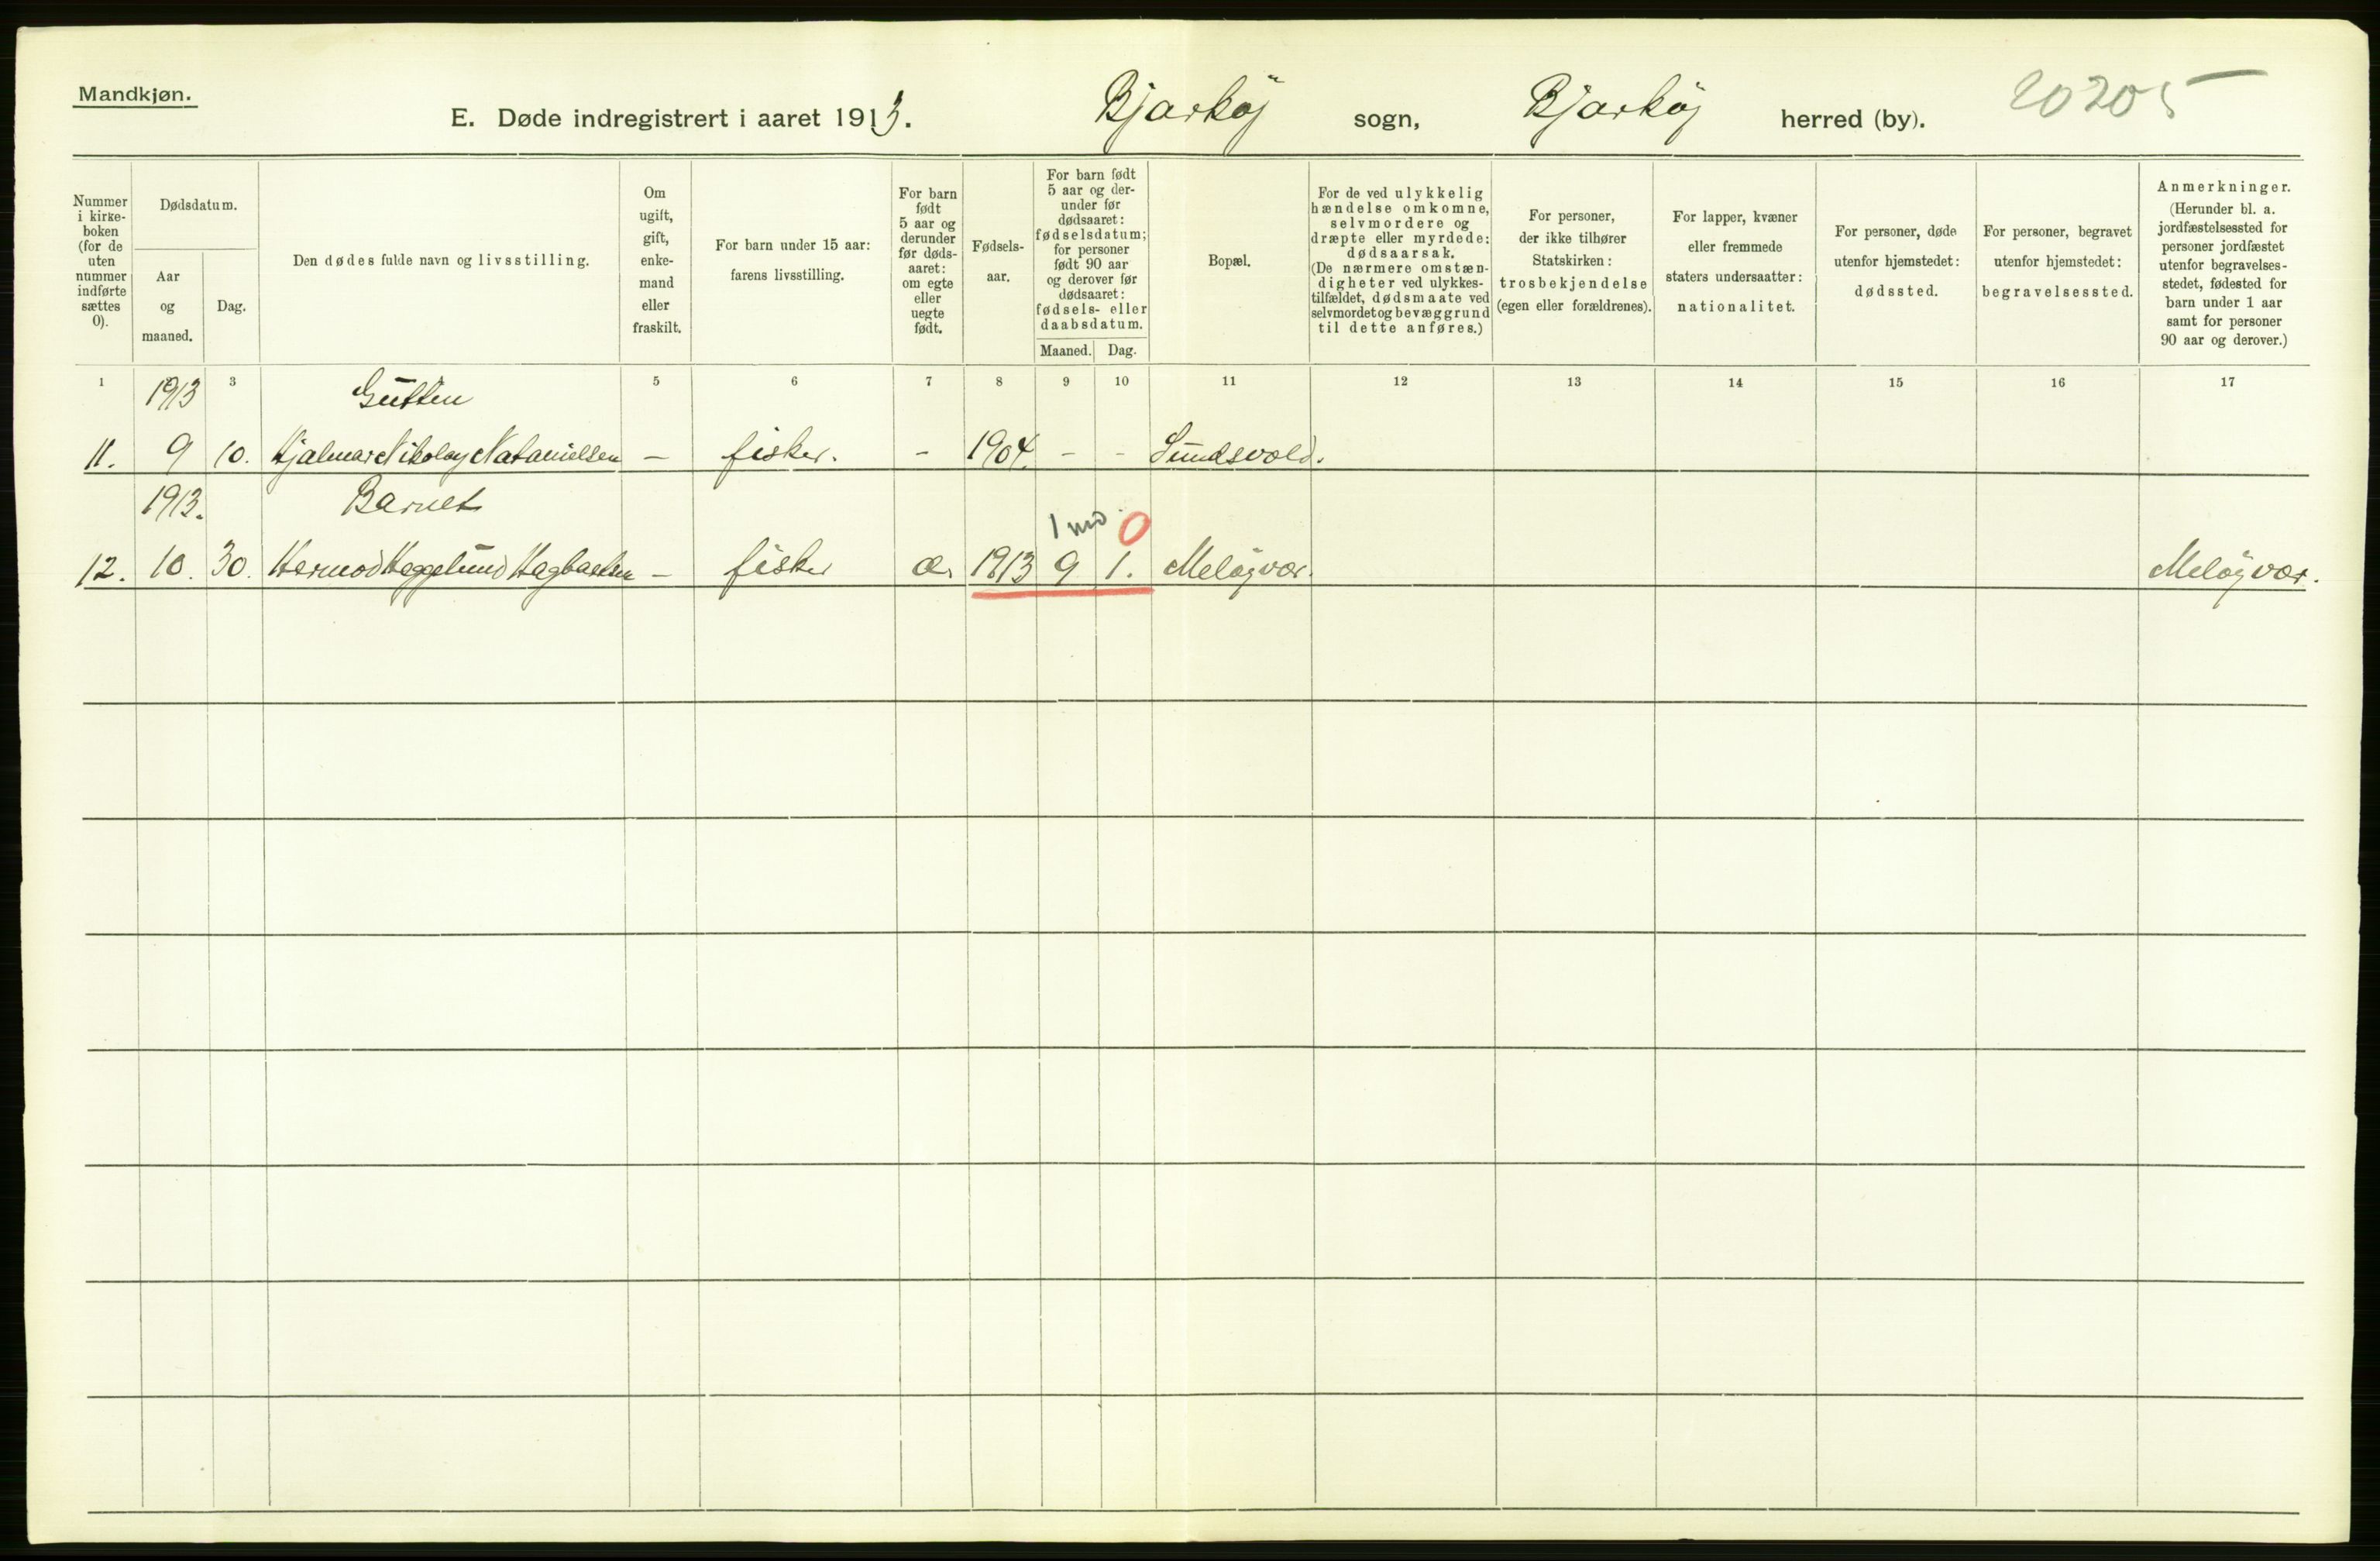 Mandkjøn.
E. Døde indregistrert i aaret 1913. Bjarkøj sogn, Bjarkøj herred (by). 20205
Nummer i kirkeboken (for de uten nummer indførte sættes 0).
Dødsdatum.
Aar og maaned.
Dag.
Den dødes fulde navn og livsstilling.
Om ugift, gift, enkemand eller fraskilt.
For barn under 15 aar: farens livsstilling.
For barn født 5 aar og derunder før dødsaaret: om egte eller uegte født.
Fødselsaar.
For barn født 5 aar og derunder før dødsaaret: fødselsdatum; for personer født 90 aar og derover før dødsaaret: fødsels- eller daabsdatum.
Maaned. Dag.
Bopæl.
For de ved ulykkelig hændelse omkomne, selvmordere og dræpte eller myrdede: dødsaarsak. (De nærmere omstændigheter ved ulykkestilfældet, dødsmaate ved selvmordet og bevæggrund til dette anføres.)
For personer, der ikke tilhører Statskirken: trosbekjendelse (egen eller forældrenes).
For lapper, kvæner eller fremmede staters undersaatter: nationalitet.
For personer, døde utenfor hjemstedet: dødssted.
For personer, begravet utenfor hjemstedet: begravelsessted.
Anmerkninger. (Herunder bl. a. jordfæstelsessted for personer jordfæstet utenfor begravelsesstedet, fødested for barn under 1 aar samt for personer 90 aar og derover.)
1 3 5 6 7 8 9 10 11 12 13 14 15 16 17
1913 Gutten
11. 9 10. Hjalmar Nikolay Natanielsen – fisker. – 1904. – – Sundsvold.
1913. Barnet
1 md 0
12. 10. 30. Hermod Heggelund Hagbartsen – fisker æ. 1913 9 1. Meløyvær. Meløyvær.